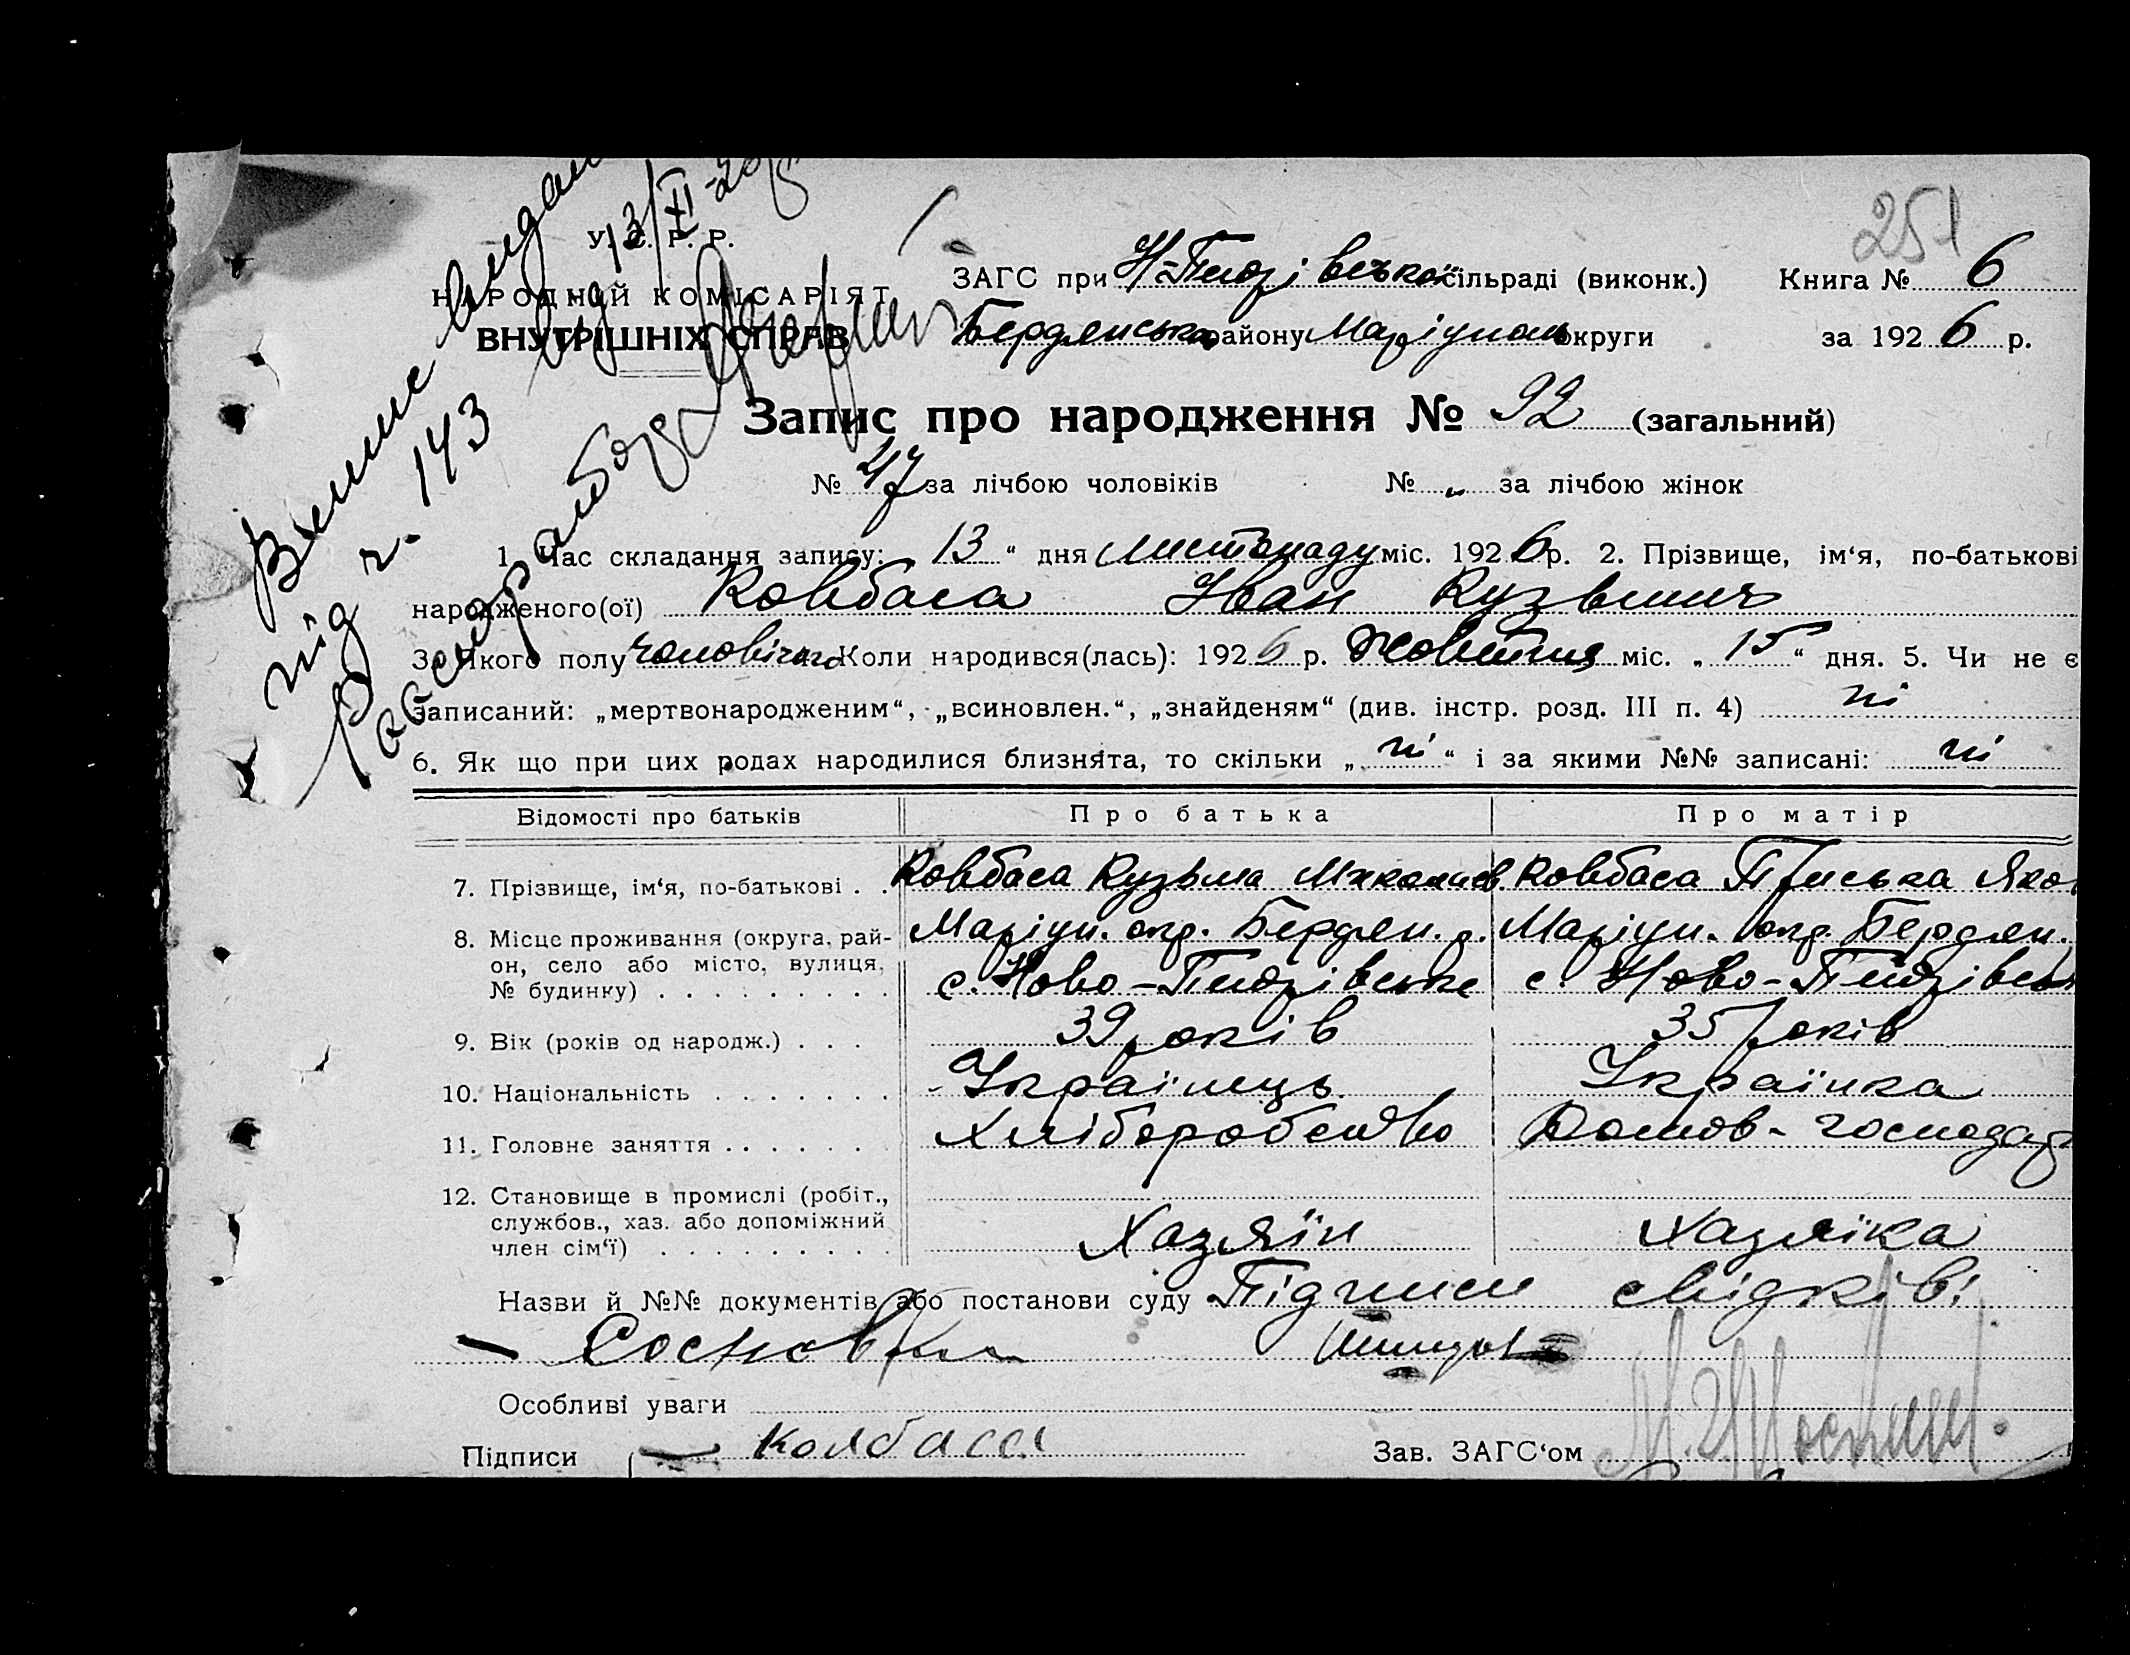 251
У. С. Р. Р.
НАРОДНИЙ КОМІСАРІЯТ
ВНУТРІШНІХ СПРАВ
Випис видани
під ч. 143 від 13/XI-26р
ЗАГС при Н-Тидрівській сільраді (виконк.) Книга № 6
Бердянська району Маріуполь округи за 1926 р.
Запис про народження № 92 (загальний)
№ 47 за лічбою чоловіків № „ за лічбою жінок
1. Час складання запису: 13 “ дня Листопаду міс. 1926 р. 2. Прізвище, ім‘я, по-батькові
народженого(ої) Ковбаса Іван Кузьмич
3. Якого полу чоловічого Коли народився(лась): 1926 р. Жовтня міс. „ 15 “ дня. 5. Чи не є
записаний: „мертвонародженим“, „всиновлен.“, „знайденям“ (див. інстр. розд. III п. 4) ні
6. Як що при цих родах народилися близнята, то скільки „ ні “ і за якими №№ записані: ні
Відомості про батьків Про батька Про матір
7. Прізвище, ім‘я, по-батькові . . Ковбаса Кузьма Миколаїв. Ковбаса Яков
8. Місце проживання (округа, рай-
он, село або місто, вулиця,
№ будинку) . . . . . . . . .
Маріуп. окр. Бердян. р. Маріуп. окр. Бердян.
с. Ново- с. Ново-
9. Вік (років од народж.) . . . 39 років 35 років
10. Національність . . . . . . . Українець Українка
11. Головне заняття . . . . . . Хліборобство Домов- господар
12. Становище в промислі (робіт.,
службов., хаз. або допоміжний
член сім‘ї) . . . . . . . . .
Хазяїн Хазяїка
Назви й №№ документів або постанови суду Підписи свідків:
Особливі уваги
Підписи Колбаса Зав. ЗАГС‘ом